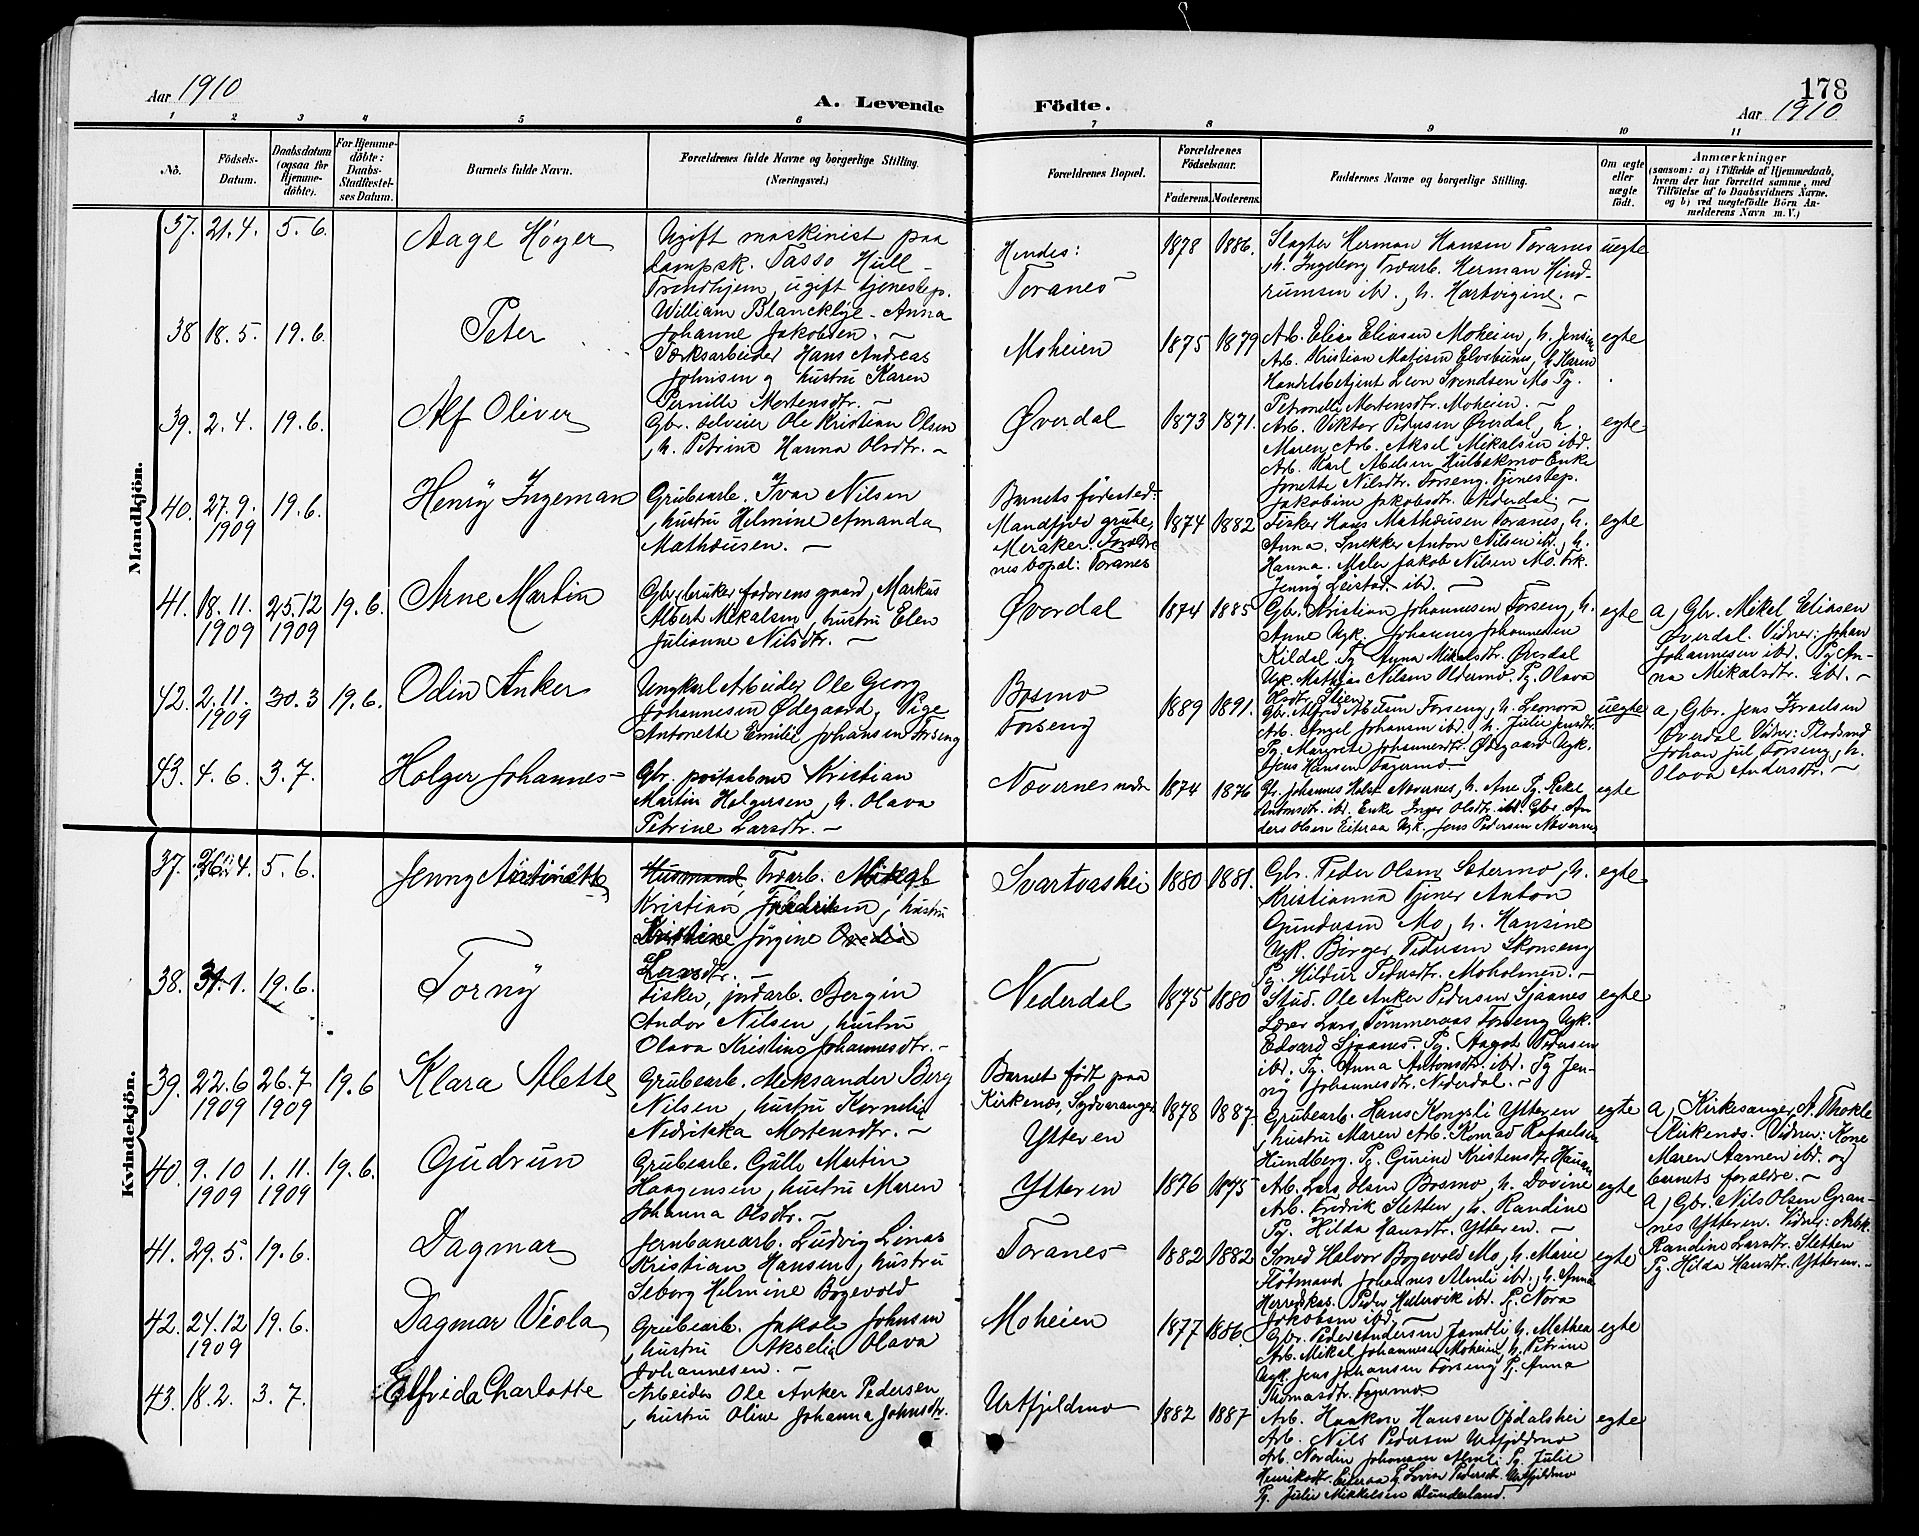 Aar 1910
A. Levende
Födte.
178
Aar 1910
1 2 3 4 5 6 7 8 9 10 11
No.
Födsels-
Datum.
Daabsdatum
(ogsaa for
Hjemme-
döbte).
For Hjemme-
döbte:
Daabs-
Stadfæstel-
ses Datum.
Barnets fulde Navn.
Forældrenes fulde Navne og borgerlige Stilling.
(Næringsvei.)
Forældrenes Bopæl.
Forældrenes
Födselsaar.
Faderens. Moderens.
Faddernes Navne og borgerlige Stilling.
Om ægte
eller
uægte
født.
Anmærkninger
(saasom: a) i Tilfælde af Hjemmedaab,
hvem der har forrettet samme, med
Tilføielse af to Daabsvidners Navne,
og b) ved uegtefödte Börn An-
melderens Navn m. V.)
Mandkjön.
37. 21.4. 5.6. Aage Höyer
Ugift maskinist paa
dampsk. Tasso Hull -
Trondhjem, ugift tjenestep.
William Blancklye - Anna
Johanne Jakobsen. -
Hendes:
Toranes
1878 1886.
Slagter Herman Hansen Toranes
h. Ingeborg Træarb. Herman Hind-
rumsen ibd., h. Hartvigine. -
uegte
38 18.5. 19.6. Peter
Værksarbeider Hans Andreas
Johnsen og hustru Karen
Pernille Mortensdtr. -
Moheien
1875 1879
Arb. Elias Eliasen Moheien, h. Jensine
Arb. Kristian Matisen h. Karen
Handelsbetjent Leon Svendsen Mo Pg.
Petronelle Mortensdtr. Moheien. -
egte
39. 2.4. 19.6. Alf Oliver
Gbr. selveier Ole Kristian Olsen
, h. Petrine Hanna Olsdtr. -
Øverdal
1873 1871.
Arb. Viktor Pedersen Øverdal, h.
Maren, Arb. Aksel Mikalsen ibd.
Arb. Karl Abelsen Hulbækmo Enke
Jonette Nilsdtr. Forseng. Tjenestep.
Jakobine Jakobsdtr. Nederdal. -
egte
40. 27.9. 1909 19.6. Henry Ingeman
Grubearb. Ivar Nilsen
, hustru Helmine Amanda
Mathæusen. -
Barnets födested:
grube,
Meraker. Foreldre
nes bopæl: Toranes
1874 1882
Fisker Hans Mathæusen Toranes, h.
Anna. Snekker Anton Nilsen ibd, h.
Hanna. Maler Jakob Nilsen Mo. Frk.
Jenny Leistad ibd. -
egte
41. 18.11. 1909 25.12 1909 19.6. Arne Martin
Gbr. bruker faderens gaard, Markus
Albert Mikalsen, hustru Elen
Julianne Nilsdtr. -
Øverdal
1874 1885
Gbr. Kristian Johannesen Forseng, h.
Anne Ugk. Johannes Johannesen
Kildal. Pg Anna Mikalsdtr. Øverdal
Ugk. Mathias Nilsen Oldermo, Pg. Olava
egte
a, Gbr. Mikel Eliasen
Øverdal. Vidner: Johan
Johannesen ibd. Pg An-
na Mikalsdtr. ibd. -
42. 2.11. 1909 30.3 19.6. Odin Anker
Ungkarl Arbeider Ole Georg
Johannesen Ødegaard, Pige
Antonette Emilie Johansen Forseng
Bosmo
Forseng
1889 1891.
Gbr. Alfred Forseng, h. Leonora
Arb. Angel Johansen ibd, h. Julie Jensdtr.
Pg. Margrete Johannesdtr. Ødegaard Ugk.
Jens Hansen Fagermo -
uegte
a, Gbr. Jens Israelsen
Øverdal Vidner: Plodsmd
Johan Jul Forseng, h.
Olava Andersdtr. -
43. 4.6. 3.7. Holger Johannes -
Gbr. Kristian
Martin Holgersen, h. Olava
Petrine Larsdtr. -
Nævernes
1874 1876
Gbr. Johannes Nævernes, h. Ane Pg. Rekel
Antonsdtr. ibd. Enke Inger Olsdtr. ibd. Gbr. An-
ders Olsen Eiteraa Ugk. Jens Pedersen Nævernes
egte
Kvindekjön.
37. 26.4. 5.6. Jenny Antonette
Husmand Træarb. Mikal
Kristian Fredriksen, hustru
Kristine Jörgine
Larsdtr.
Svartvashei
1880 1881.
Gbr. Peder Olsen Sætermo, h.
Kristianna Tjener Anton
Gundersen Mo, h. Hansine
Ugk. Birger Pedersen Skonseng
Pg. Hildur Pedersdtr. Moholmen. -
egte
38. 31.1. 19.6. Torny
Fisker, jordarb. Bergin
Andor Nilsen, hustru
Olava Kristine Johannesdtr. -
Nederdal
1875 1880
Stud. Ole Anker Pedersen Sjaanes
Lærer Lars Tömmeraas Forseng Ugk.
Edvard Sjaanes. Pg. Aagot Pedersen
ibd. Pg. Anna Antonsdtr. ibd. Pg Jen-
ny Johannesdtr. Nederdal. -
egte
39. 22.6 1909 26.7 1909 19.6 Klara Alette
Grubearb. Aleksander Berg
Nilsen, hustru Kornelia
Mortensdtr. -
Barnet födt paa
Kirkenæs, Sydvaranger
Ytteren
1878 1887.
Grubearb. Hans Kongsli Ytteren
, hustru Maren Arb. Konrad Rafaelsen
Hundberg. Pg. Gurine Kristensdtr
egte
a, Kirkesanger A. Thokle
Kirkenæs. Vidner: Kone
Maren Aamen ibd. og
barnets foraldre. -
40. 9.10 1909 1.11. 1909 19.6. Gudrun
Grubearb. Gulle Martin
Haagensen, hustru Maren
Johanna Olsdtr. -
Ytteren
1876 1875
Arb. Lars Olsen Bosmo, h. Dovine
Arb. Fredrik Sletten, h. Randine
Pg. Hilda Hansdtr. Ytteren. -
egte
a, Gbr. Nils Olsen Gran-
nes Ytteren. Vidner: Arbk.
Randine Larsdtr. Sletten
Pg. Hilda Hansdtr. Ytteren. -
41. 29.5. 19.6. Dagmar
Jernbanearb. Ludvig Linas
Kristian Hansen, hustru
Seborg Helmine Bogevold
Toranes
1882 1882
Smed Halvor Bogevold Mo, h. Marie
Flötmand Johannes Almli ibd., h. Anna
Herredskas. Peder Hellervik ibd. Pg. Nora
Jakobsen ibd. -
egte
42. 24.12 1909 19.6. Dagmar Viola
Grubearb. Jakob Johnsen
, hustru Akselia Olava
Johannesen. -
Moheien
1877 1886.
Gbr. Peder Andersen Jamtli h. Mathea
Arb. Mikal Johannesen Moheien, h. Petrine
Ugk. Jens Johansen Forseng Pg. Anna
Thomasdtr. Fagermo
egte
43. 18.2. 3.7. Elfrida Charlotte
Arbeider Ole Anker Pedersen
, hustru Oline Johanna Johnsdtr.
Urtfjeldmo
1882 1887
Arb. Haakon Hansen Opdalshei
Arb. Nils Pedersen Urtfjeldmo
Arb. Nordin Johansen Almli. Pg. Julie
Henriksdtr. Eiteraa Pg. Lovise Pedersdtr. Urtfjeldmo
Pg. Julie Mikkelsen Dunderland.
egte